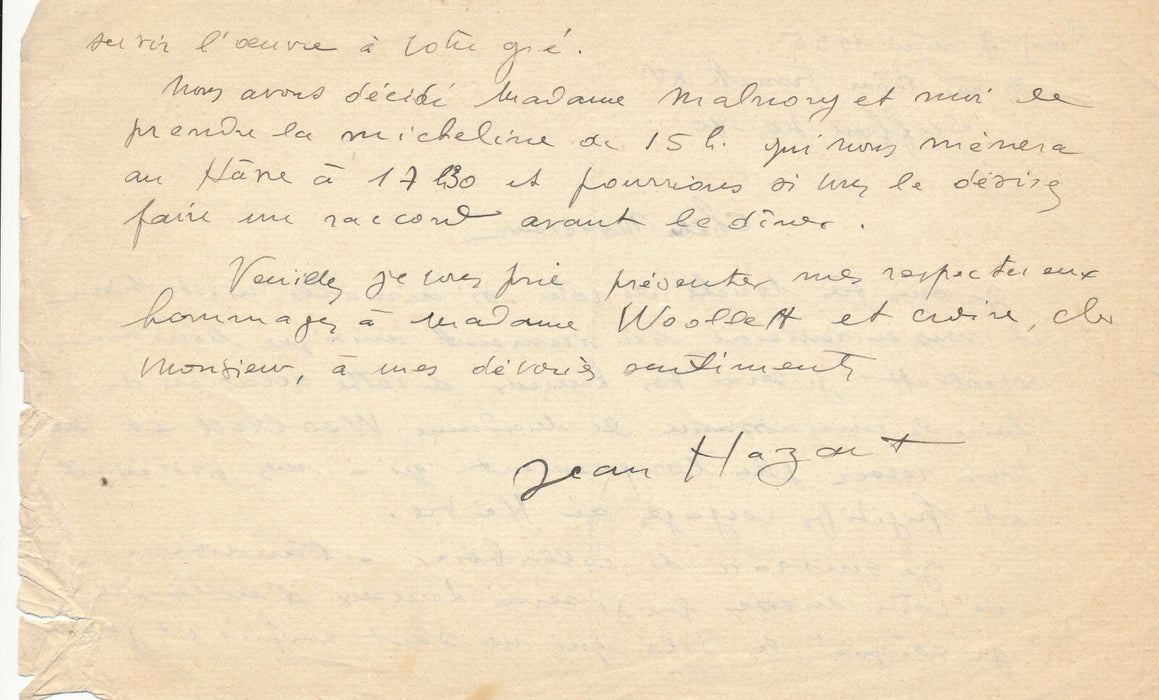 servir l'œuvre à votre gré.
Nous avons décidé Madame Malnory et moi de
prendre la micheline de 15 h. qui nous mènera
au Hâvre à 17h30 et pourrions si vous le désirez
faire un raccord avant le dîner.
Veuillez je vous prie présenter mes respectueux
hommages à Madame Woollett et croire, cher
Monsieur, à mes dévoués sentiments
Jean Hazart